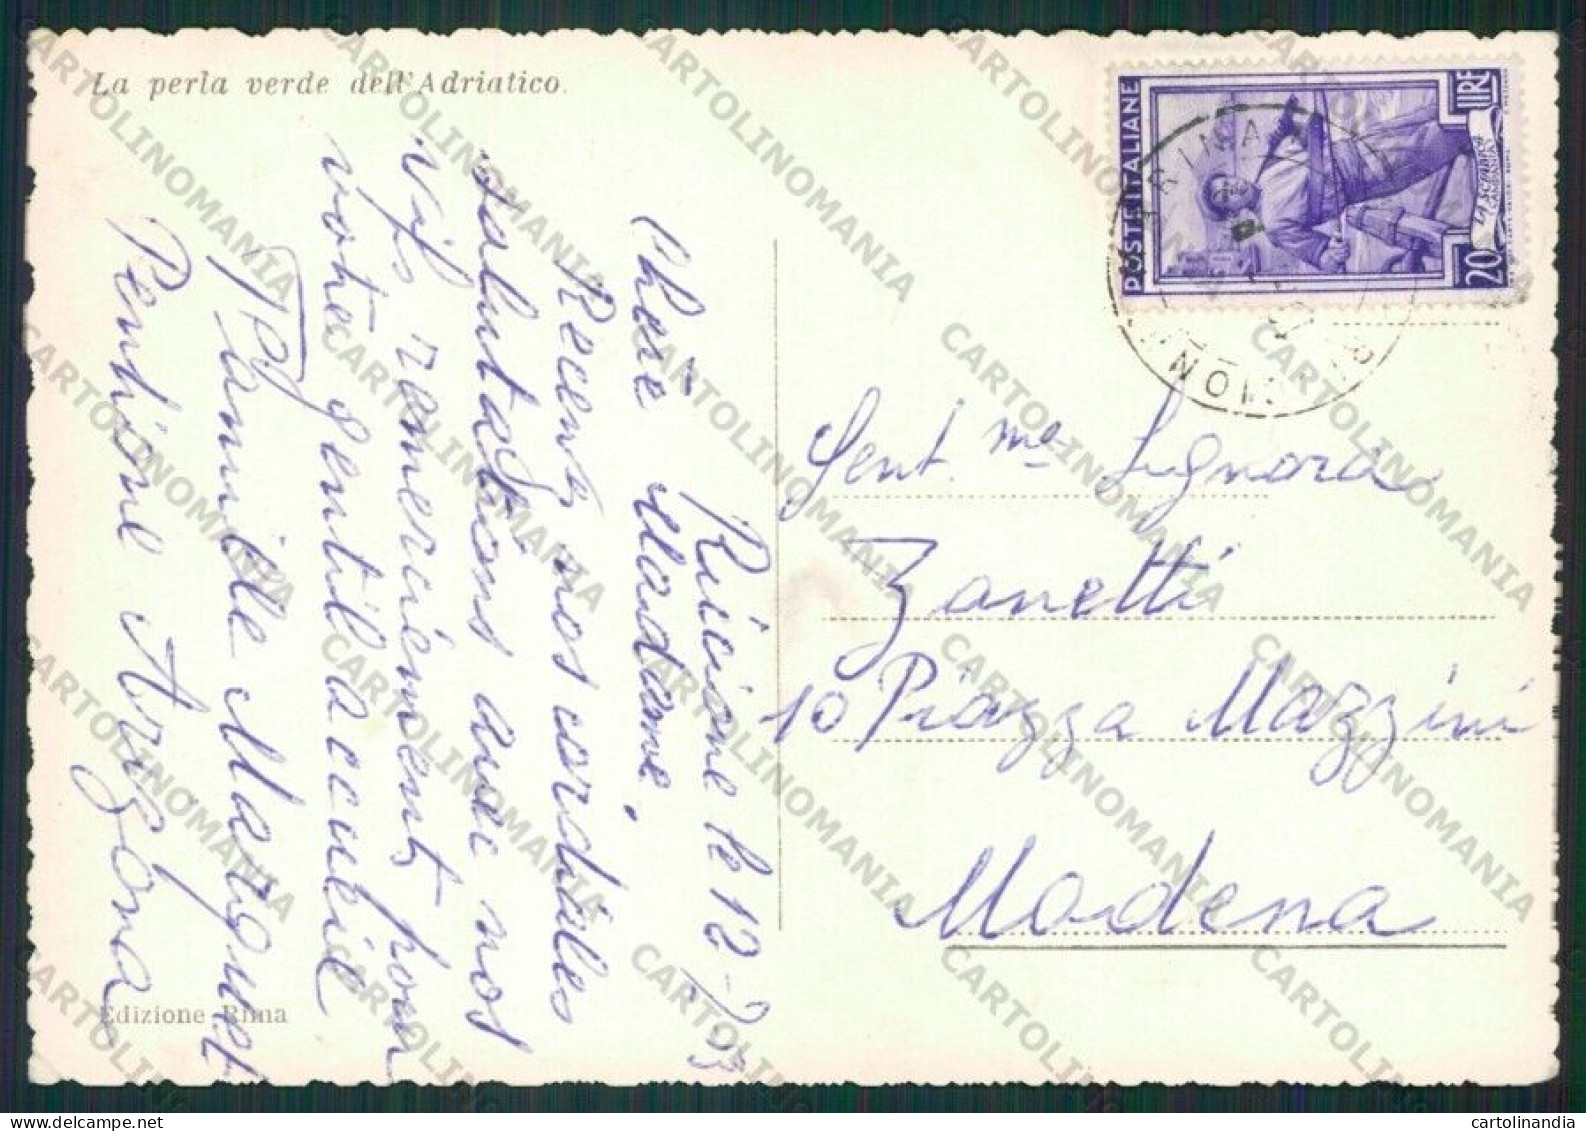 La perla verde dell'Adriatico.
Riccione le 12-7-53
Chère Madame,
Recevez nos cordiales
salutations avec nos
vifs remerciements pour
votre gentil accueil
Famille Maerquet
Pensione Arizona
Edizione Rima
POSTE ITALIANE
LIRE 20
Gent.ma Signora
Zanetti
10 Piazza Mazzini
Modena
CARTOLINOMANIA
cartolinandia